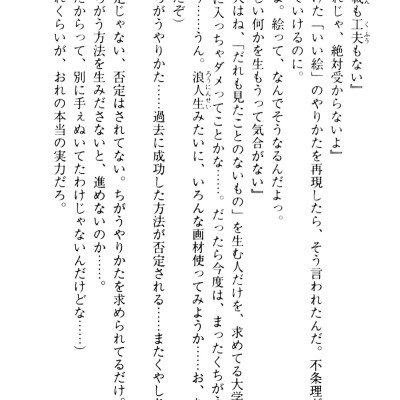 戦も工夫もない』
れじゃ、絶対受からないよ』
けた「いい絵」のやりかたを再現したら、そう言われたんだ。不条理
ていけるのに。
。絵って、なんでそうなるんだよっ。
しい何かを生もうって気合がない』
人はね、「だれも見たことのないもの」を生む人だけを、求めてる大学
に入っちゃダメってことかな……。だったら今度は、まったくちがう
……うん。浪人生みたいに、いろんな画材使ってみようか……お、
だぞ）
ちがうやりかた……過去に成功した方法が否定される……またくやし
定じゃない、否定はされてない。ちがうやりかたを求められてるだけ。
がう方法を生みださないと、進めないのか……。
だからって、別に手ぇぬいてたわけじゃないんだけどな……）
れくらいが、おれの本当の実力だろ。